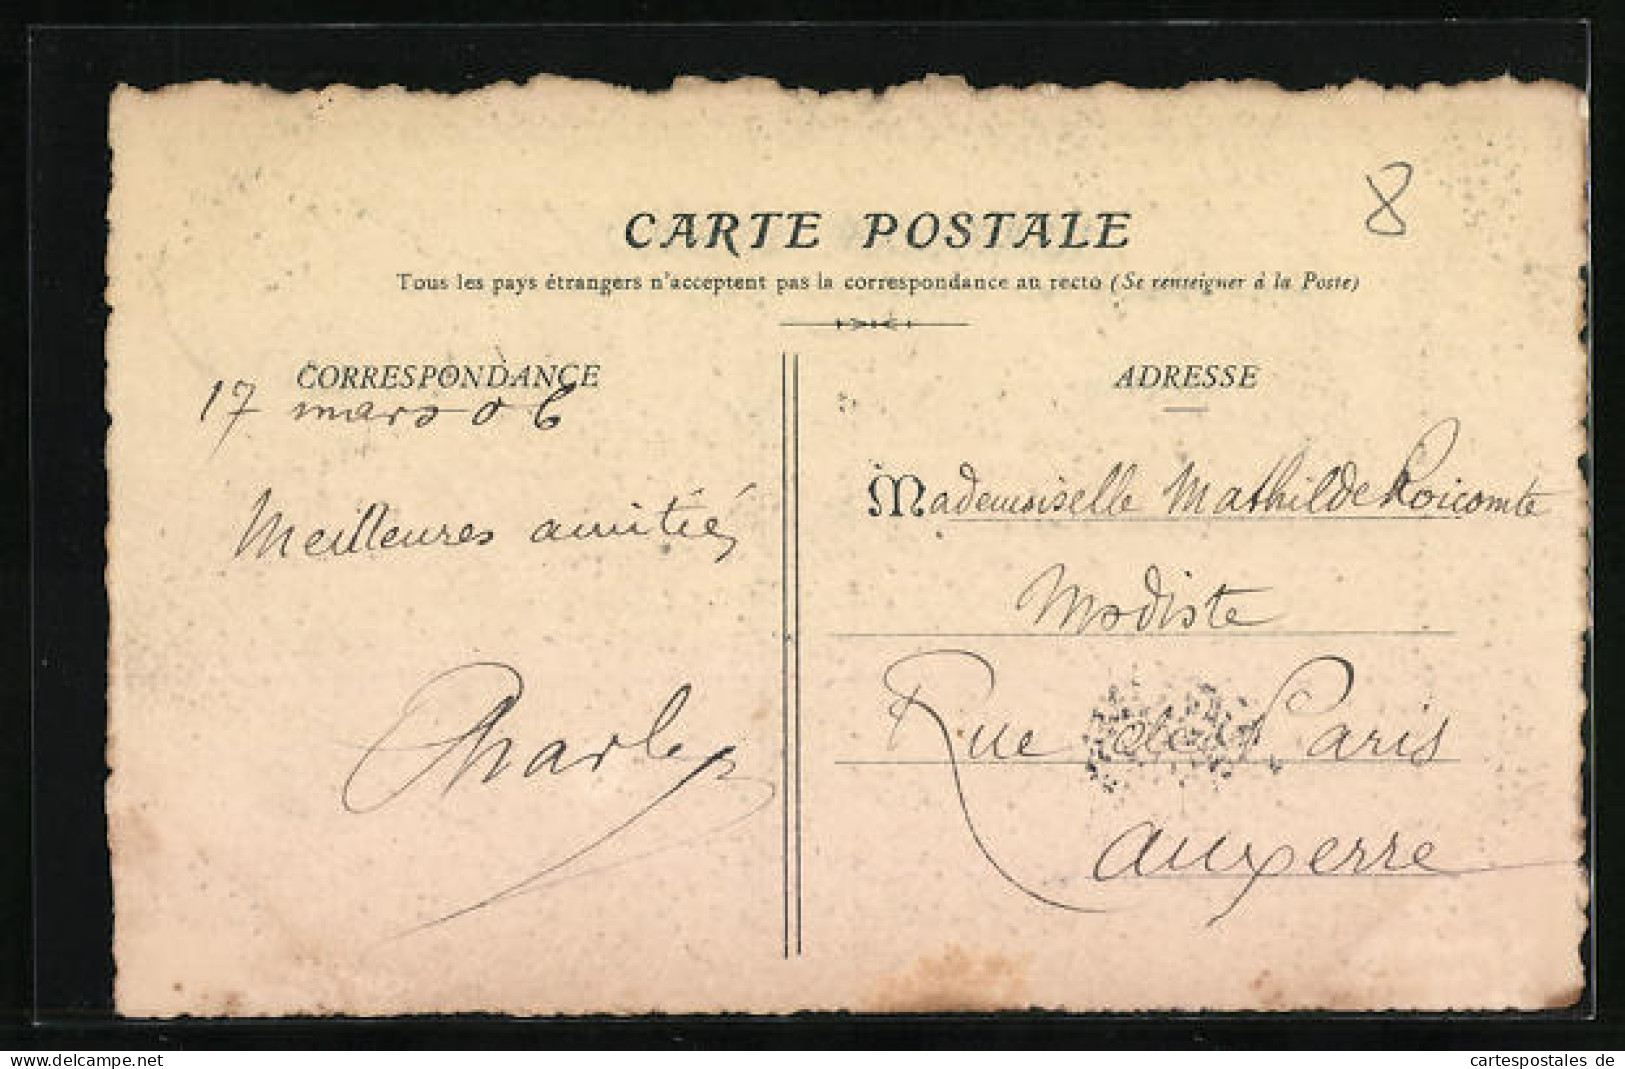 8
CARTE POSTALE
Tous les pays étrangers n'acceptent pas la correspondance au recto (Se renseigner à la Poste)
CORRESPONDANCE
17 mars 06
Meilleures amitiés
Charles
ADRESSE
Mademoiselle Mathilde
Modiste
Rue de Paris
Auxerre
www.delcampe.net
cartespostales de